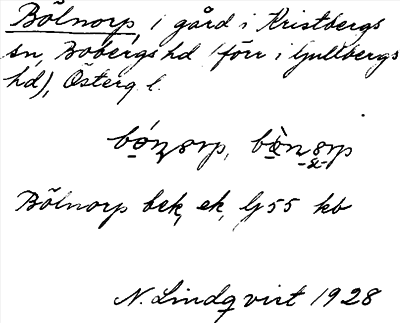 Bölnorp, 1 gård i Kristbergs
sn, Bobergs hd (förr i Gullbergs
hd), Österg l.
Bölnorp bek, ek, G 55 kb
N. Lindqvist 1928